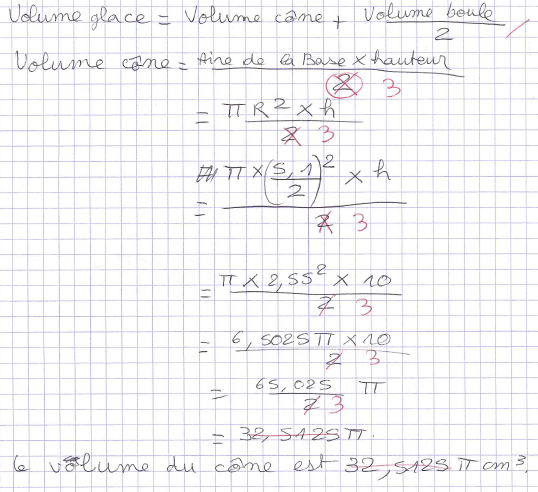 Volume glace = Volume cône + Volume boule / 2
Volume cône = Aire de la Base x hauteur / 2 3
= π R² x h / 2 3
= π x (5,1 / 2)² x h / 2 3
= π x 2,55² x 10 / 2 3
= 6,5025 π x 10 / 2 3
= 65,025 / 2 3 π
= 32,5125 π.
le volume du cône est 32,5125 π cm³.